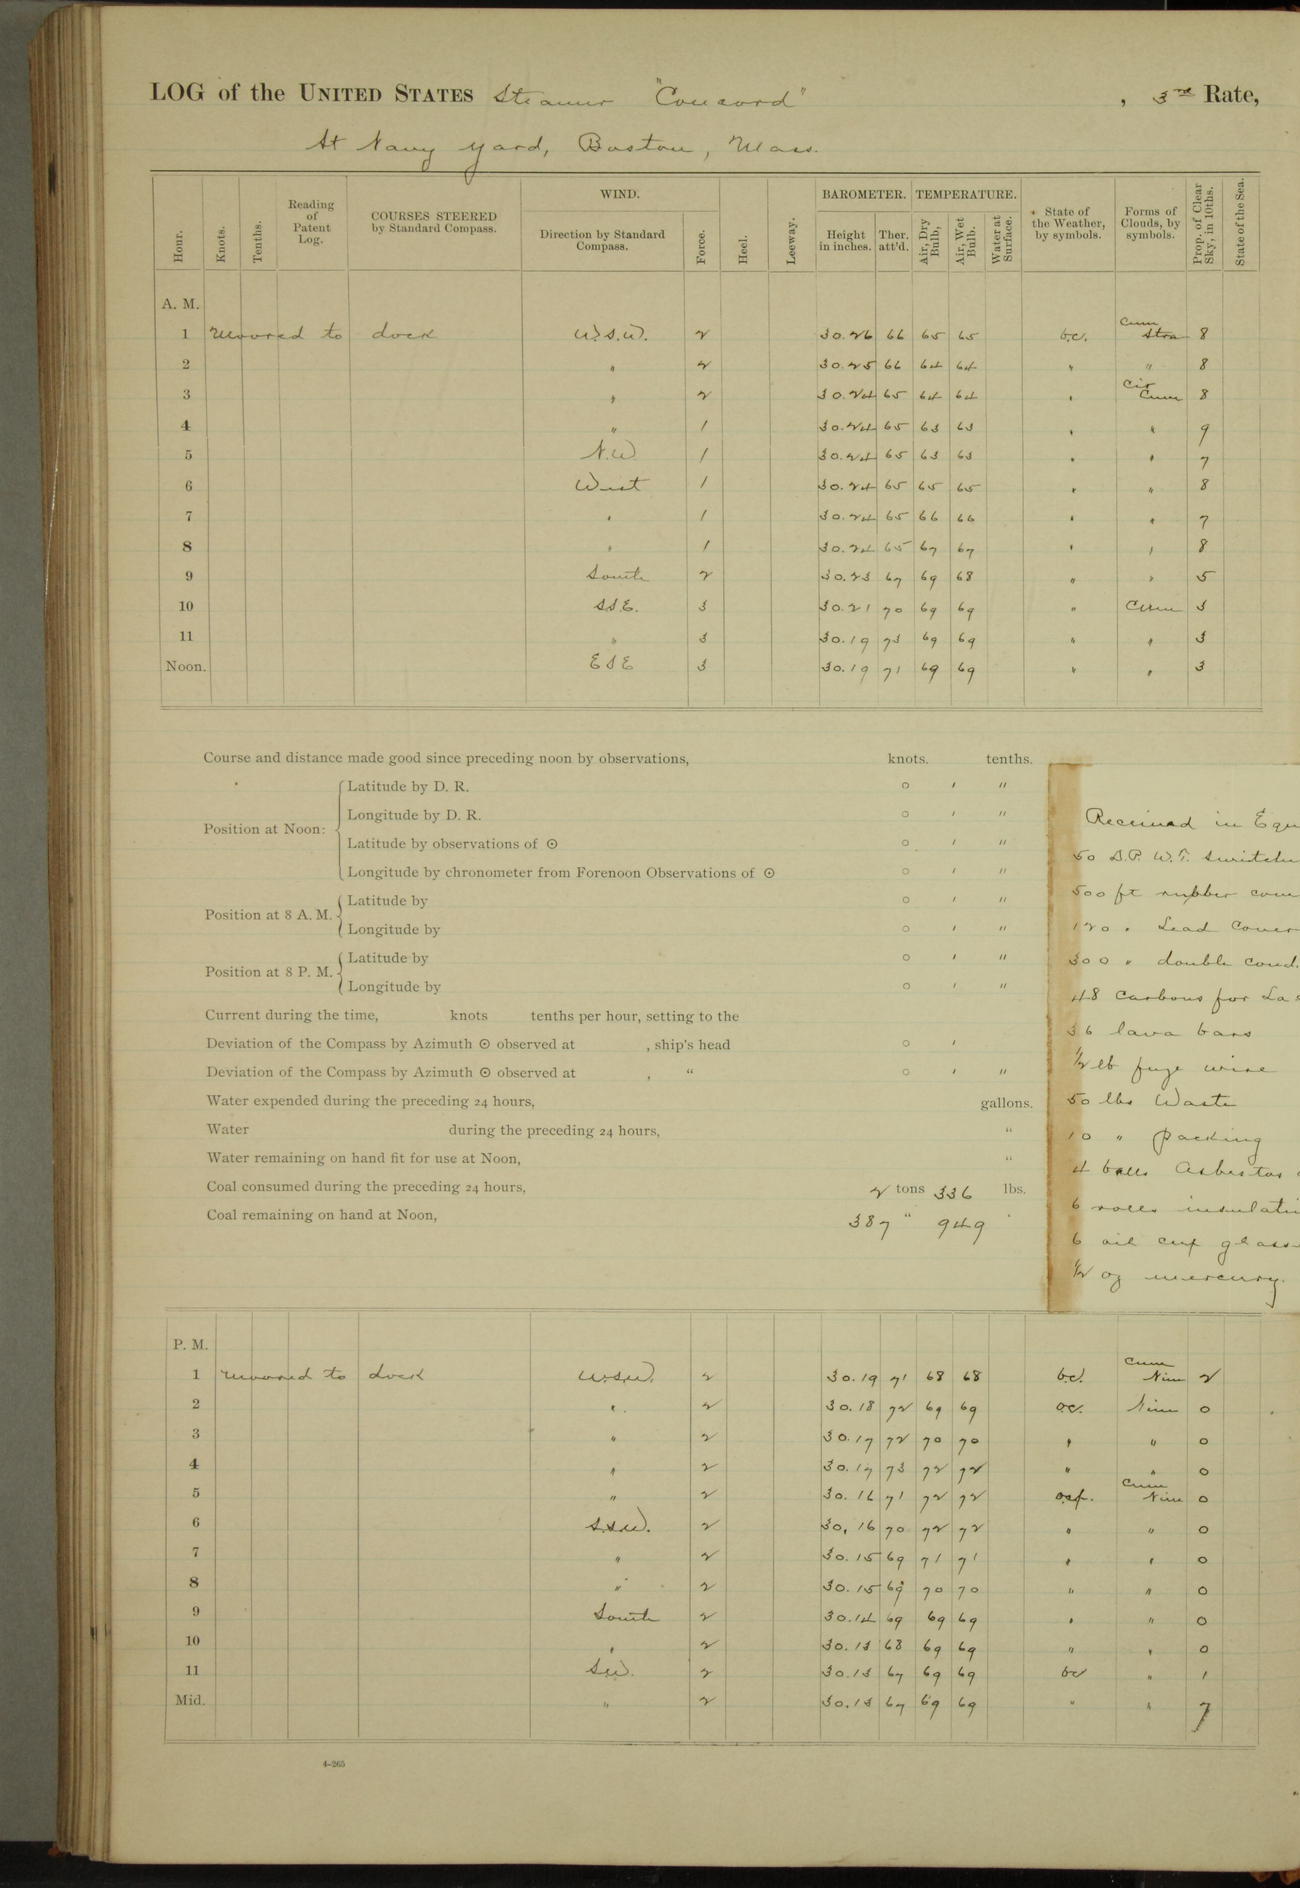 LOG of the UNITED STATES Steamer "Concord", 3rd Rate,
At Navy Yard, Boston, Mass.
Hour. Knots. Tenths. Reading of Patent Log. COURSES STEERED by Standard Compass. WIND. Direction by Standard Compass. Force. Heel. Leeway. BAROMETER. Height in inches. Ther. att'd. TEMPERATURE. Air, Dry Bulb, Air, Wet Bulb. Water at Surface. * State of the Weather, by symbols. Forms of Clouds, by symbols. Prop. of Clear Sky, in 10ths. State of the Sea.
A. M.
1 Moored to dock W.S.W. 2 30.26 66 65 65 b.c. Cum Stra 8
2 " 2 30.25 66 64 64 " " 8
3 " 2 30.24 65 64 64 " Cir Cum 8
4 " 1 30.24 65 63 63 " " 9
5 N.W 1 30.24 65 63 63 " " 7
6 West 1 30.24 65 65 65 " " 8
7 " 1 30.24 65 66 66 " " 7
8 " 1 30.24 65 67 67 " " 8
9 South 2 30.23 67 69 68 " " 5
10 S.S.E. 3 30.21 70 69 69 " Cum 3
11 " 3 30.19 73 69 69 " " 3
Noon. E S E 3 30.19 71 69 69 " " 3
Course and distance made good since preceding noon by observations, knots. tenths.
Position at Noon: Latitude by D. R. ○ ′ ″
Longitude by D. R. ○ ′ ″
Latitude by observations of ⊙ ○ ′ ″
Longitude by chronometer from Forenoon Observations of ⊙ ○ ′ ″
Position at 8 A. M. Latitude by ○ ′ ″
Longitude by ○ ′ ″
Position at 8 P. M. Latitude by ○ ′ ″
Longitude by ○ ′ ″
Current during the time, knots tenths per hour, setting to the
Deviation of the Compass by Azimuth ⊙ observed at , ship's head ○ ′
Deviation of the Compass by Azimuth ⊙ observed at , " ○ ′ ″
Water expended during the preceding 24 hours, gallons.
Water during the preceding 24 hours, "
Water remaining on hand fit for use at Noon, "
Coal consumed during the preceding 24 hours, 2 tons 336 lbs.
Coal remaining on hand at Noon, 387 " 949 "
Received in Equ
50 D.P. W.T. switche
500 ft rubber cov
120 " Lead Cover
300 " double cond.
48 Carbons for La
36 lava bars
1/2 lb fuze wire
50 lbs Waste
10 " packing
4 balls Asbestos
6 rolls insulati
6 oil cup glass
1/2 oz mercury.
P. M.
1 Moored to dock W.S.W. 2 30.19 71 68 68 b.c. Cum Nim 2
2 " 2 30.18 72 69 69 o.c. Nim 0
3 " 2 30.17 72 70 70 " " 0
4 " 2 30.17 73 72 72 " " 0
5 " 2 30.16 71 72 72 Cum Nim 0
6 S.S.W. 2 30.16 70 72 72 " " 0
7 " 2 30.15 69 71 71 " " 0
8 " 2 30.15 69 70 70 " " 0
9 South 2 30.14 69 69 69 " " 0
10 " 2 30.13 68 69 69 " " 0
11 S.W. 2 30.13 67 69 69 bc " 1
Mid. " 2 30.13 67 69 69 " " 7
4–265